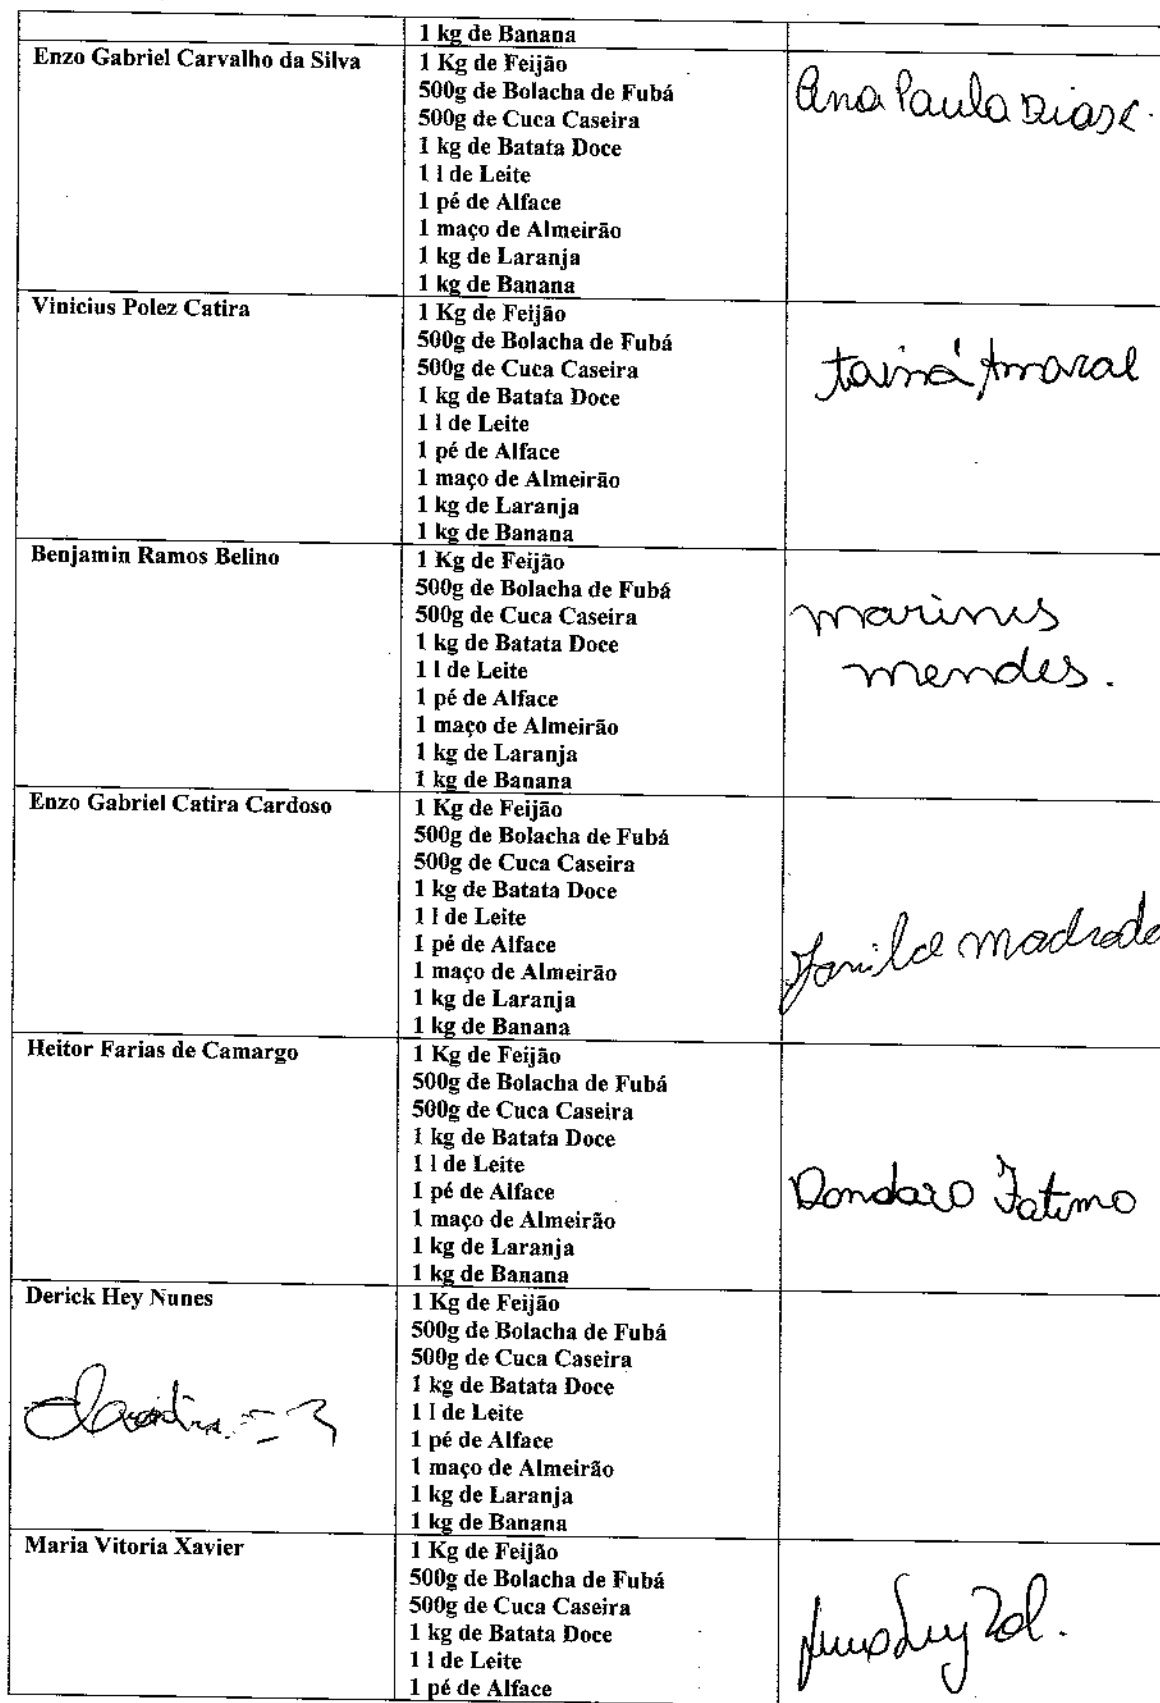 1 kg de Banana
Enzo Gabriel Carvalho da Silva
1 Kg de Feijão
500g de Bolacha de Fubá
500g de Cuca Caseira
1 kg de Batata Doce
1 l de Leite
1 pé de Alface
1 maço de Almeirão
1 kg de Laranja
1 kg de Banana
Ana Paula
Vinicius Polez Catira
1 Kg de Feijão
500g de Bolacha de Fubá
500g de Cuca Caseira
1 kg de Batata Doce
1 l de Leite
1 pé de Alface
1 maço de Almeirão
1 kg de Laranja
1 kg de Banana
tainá Amaral
Benjamin Ramos Belino
1 Kg de Feijão
500g de Bolacha de Fubá
500g de Cuca Caseira
1 kg de Batata Doce
1 l de Leite
1 pé de Alface
1 maço de Almeirão
1 kg de Laranja
1 kg de Banana
marines
mendes.
Enzo Gabriel Catira Cardoso
1 Kg de Feijão
500g de Bolacha de Fubá
500g de Cuca Caseira
1 kg de Batata Doce
1 l de Leite
1 pé de Alface
1 maço de Almeirão
1 kg de Laranja
1 kg de Banana
Heitor Farias de Camargo
1 Kg de Feijão
500g de Bolacha de Fubá
500g de Cuca Caseira
1 kg de Batata Doce
1 l de Leite
1 pé de Alface
1 maço de Almeirão
1 kg de Laranja
1 kg de Banana
Derick Hey Nunes
1 Kg de Feijão
500g de Bolacha de Fubá
500g de Cuca Caseira
1 kg de Batata Doce
1 l de Leite
1 pé de Alface
1 maço de Almeirão
1 kg de Laranja
1 kg de Banana
Maria Vitoria Xavier
1 Kg de Feijão
500g de Bolacha de Fubá
500g de Cuca Caseira
1 kg de Batata Doce
1 l de Leite
1 pé de Alface